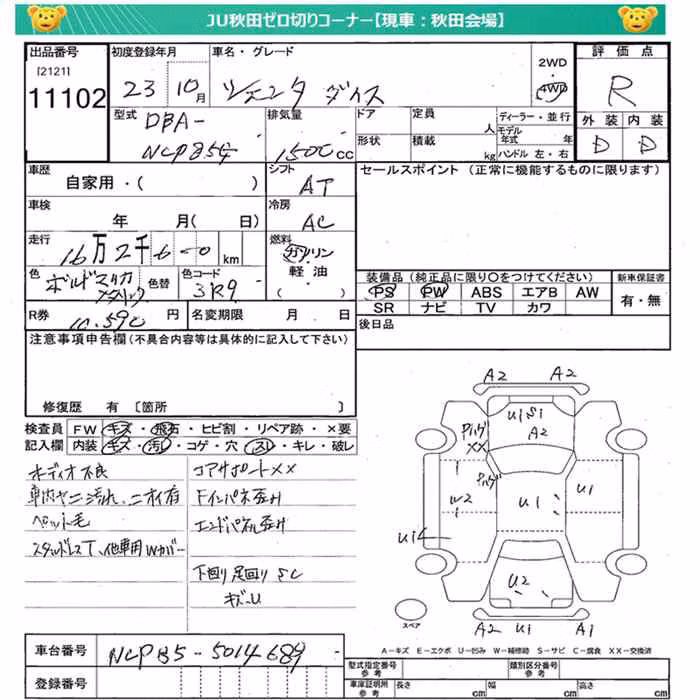 JU秋田ゼロ切りコーナー【現車：秋田会場】
出品番号 初度登録年月 車名・グレード 2WD 評価点
[2121] 11102 23年10月 シエンタ ダイス 4WD R
型式 排気量 ドア 定員 人 ディーラー・並行 外装 内装
DBA- モデル年式 年 D D
NCP85G 1500cc 形状 積載 kg ハンドル 左・右
車歴 シフト セールスポイント（正常に機能するものに限ります）
自家用・（ ） AT
車検 冷房
年 月（ 日） AC
走行 燃料
16万2千600km ガソリン
軽油・
（ ）
色 ボルドーマイカメタリック 色替 色コード 3R9
装備品（純正品に限り○をつけてください） 新車保証書
PS PW ABS エアB AW 有・無
SR ナビ TV カワ
R券 10.590円 名変期限 月 日
後日品
注意事項申告欄（不具合内容等は具体的に記入して下さい）
修復歴 有 〔箇所 〕
検査員 FW キズ・飛石・ヒビ割・リペア跡・×要
記入欄 内装 キズ・汚レ・コゲ・穴・スレ・キレ・破レ
オーディオ不良
車内ヤニ汚れ、ニオイ有
ペット毛
スタッドレスT、他車用Wカバー
コアサポートXX
Fインパネ歪み
エンドパネル歪み
下回り足回りSC
キズ・U
A2 A2
U1 S1
A2
ハゲ
XX
ハゲ
W2 U1 U1
U14
U2
A2 U1 A1
スペア
A－キズ E－エクボ U－凹み W－補修跡 S－サビ C－腐食 XX－交換済
車台番号 NCP85-5014689
登録番号
型式指定番号 参考 類別区分番号 参考
車庫証明所 参考 長さ cm 幅 cm 高さ cm